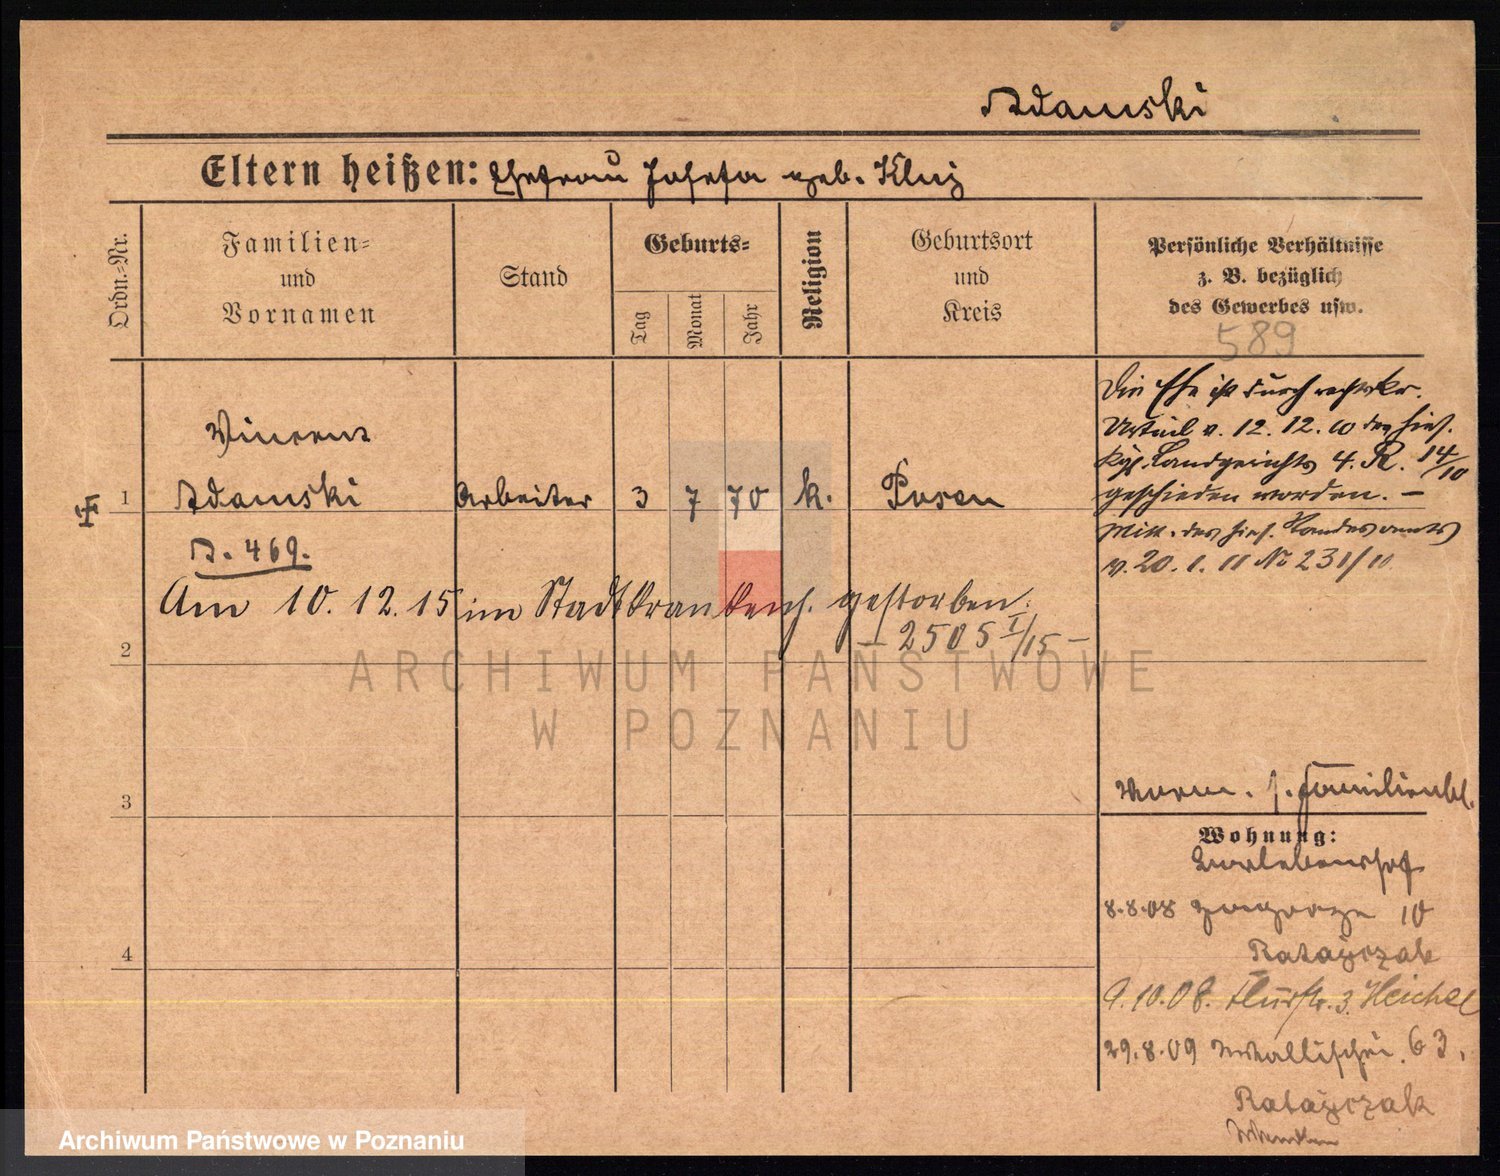 Adamski
Eltern heißen: Ehefrau Josefa geb. Kluj
Ordn.=Nr.
Familien=
und
Vornamen
Stand
Geburts=
Tag
Monat
Jahr
Religion
Geburtsort
und
Kreis
Persönliche Verhältnisse
z. B. bezüglich
des Gewerbes usw.
589
Vincent
1 Adamski Arbeiter 3 7 70 k. Posen
A. 469.
Am 10. 12. 15 im Stadtkrankenh. gestorben.
– 2505 I/15 –
Die Ehe ist durch rechtskr.
Urteil v. 12. 12. 10 des hies.
Kgl. Landgerichts 4. R. 14/10
geschieden worden. –
Mitt. des hies. Standesamts
v. 20. 1. 11 No 231/11
2
ARCHIWUM PAŃSTWOWE
W POZNANIU
3
Verm. s. Familienbl.
Wohnung:
4
8.8.08 10
Ratajczak
9.10.08. Flurstr. 3. Heichel
29.8.09 Wallischei 63.
Ratajczak
Wenden
Archiwum Państwowe w Poznaniu